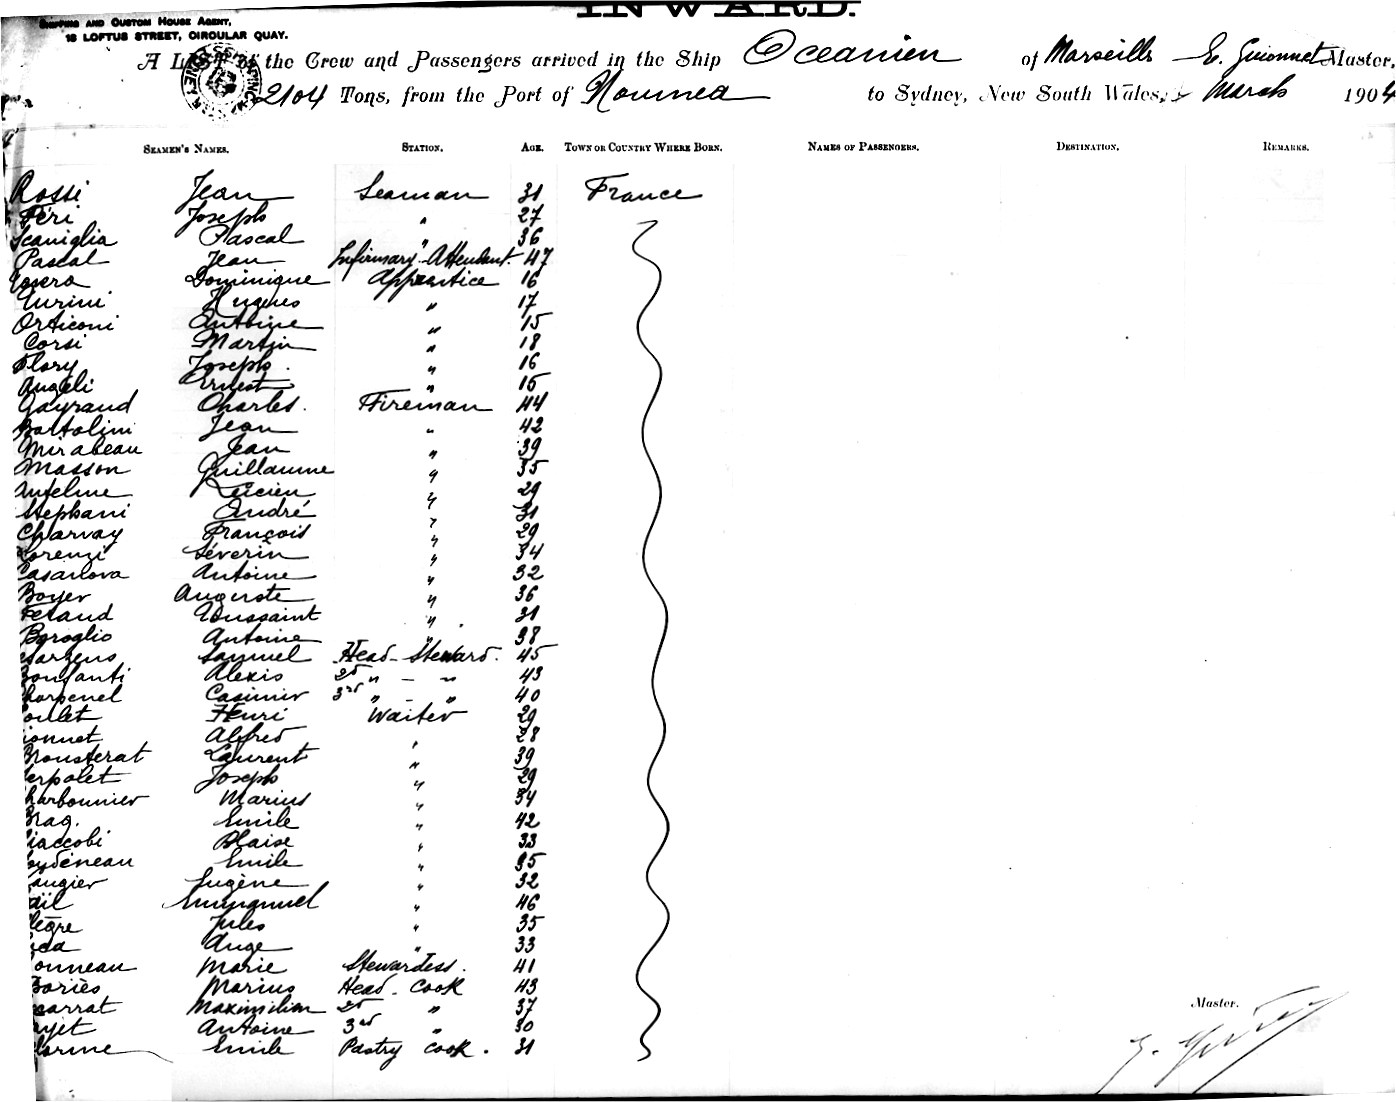 INWARD.
SHIPPING AND CUSTOM HOUSE AGENT,
16 LOFTUS STREET, CIRCULAR QUAY.
A LIST of the Crew and Passengers arrived in the Ship Oceanien of Marseille E. Guionnet Master,
2104 Tons, from the Port of Noumea to Sydney, New South Wales, March 1904
SEAMEN'S NAMES. STATION. AGE. TOWN OR COUNTRY WHERE BORN. NAMES OF PASSENGERS. DESTINATION. REMARKS.
Rossi Jean Seaman 31 France
Péri Joseph " 27
Scaniglia Pascal " 36
Pascal Jean Infirmary Attendant 47
Dominique Apprentice 16
Hugues " 17
Orticoni Antoine " 15
Corsi Martin " 18
Flory Joseph " 16
Angeli Ernest " 15
Gayraud Charles. Fireman 44
Bartolini Jean " 42
Mirabeau Jean " 39
Masson Guillaume " 35
Anselme Lucien " 29
Stephani André " 31
Charvay François " 29
Lorenzi Séverin " 34
Casanova Antoine " 32
Boyer Auguste " 36
Féraud Toussaint " 31
Boroglio Antoine " 38
Samuel Head-Steward. 45
Bonfanti Alexis 2d " - " 43
Charpenel Casimir 3rd " - " 40
oulet Henri Waiter 29
ionnet Alfred " 28
Brousterat Laurent " 39
erpolet Joseph " 29
harbonnier Marius " 34
Brag. Emile " 42
iaccobi Blaise " 33
eydéneau Emile " 35
augier Eugène " 32
ail Emmanuel " 46
lègre Jules " 35
Ange " 33
onneau Marie Stewardess. 41
Bories Marius Head-Cook 43
arrat Maximilien 2d " 37
Antoine 3rd " 30
Emile Pastry cook. 31
Master.